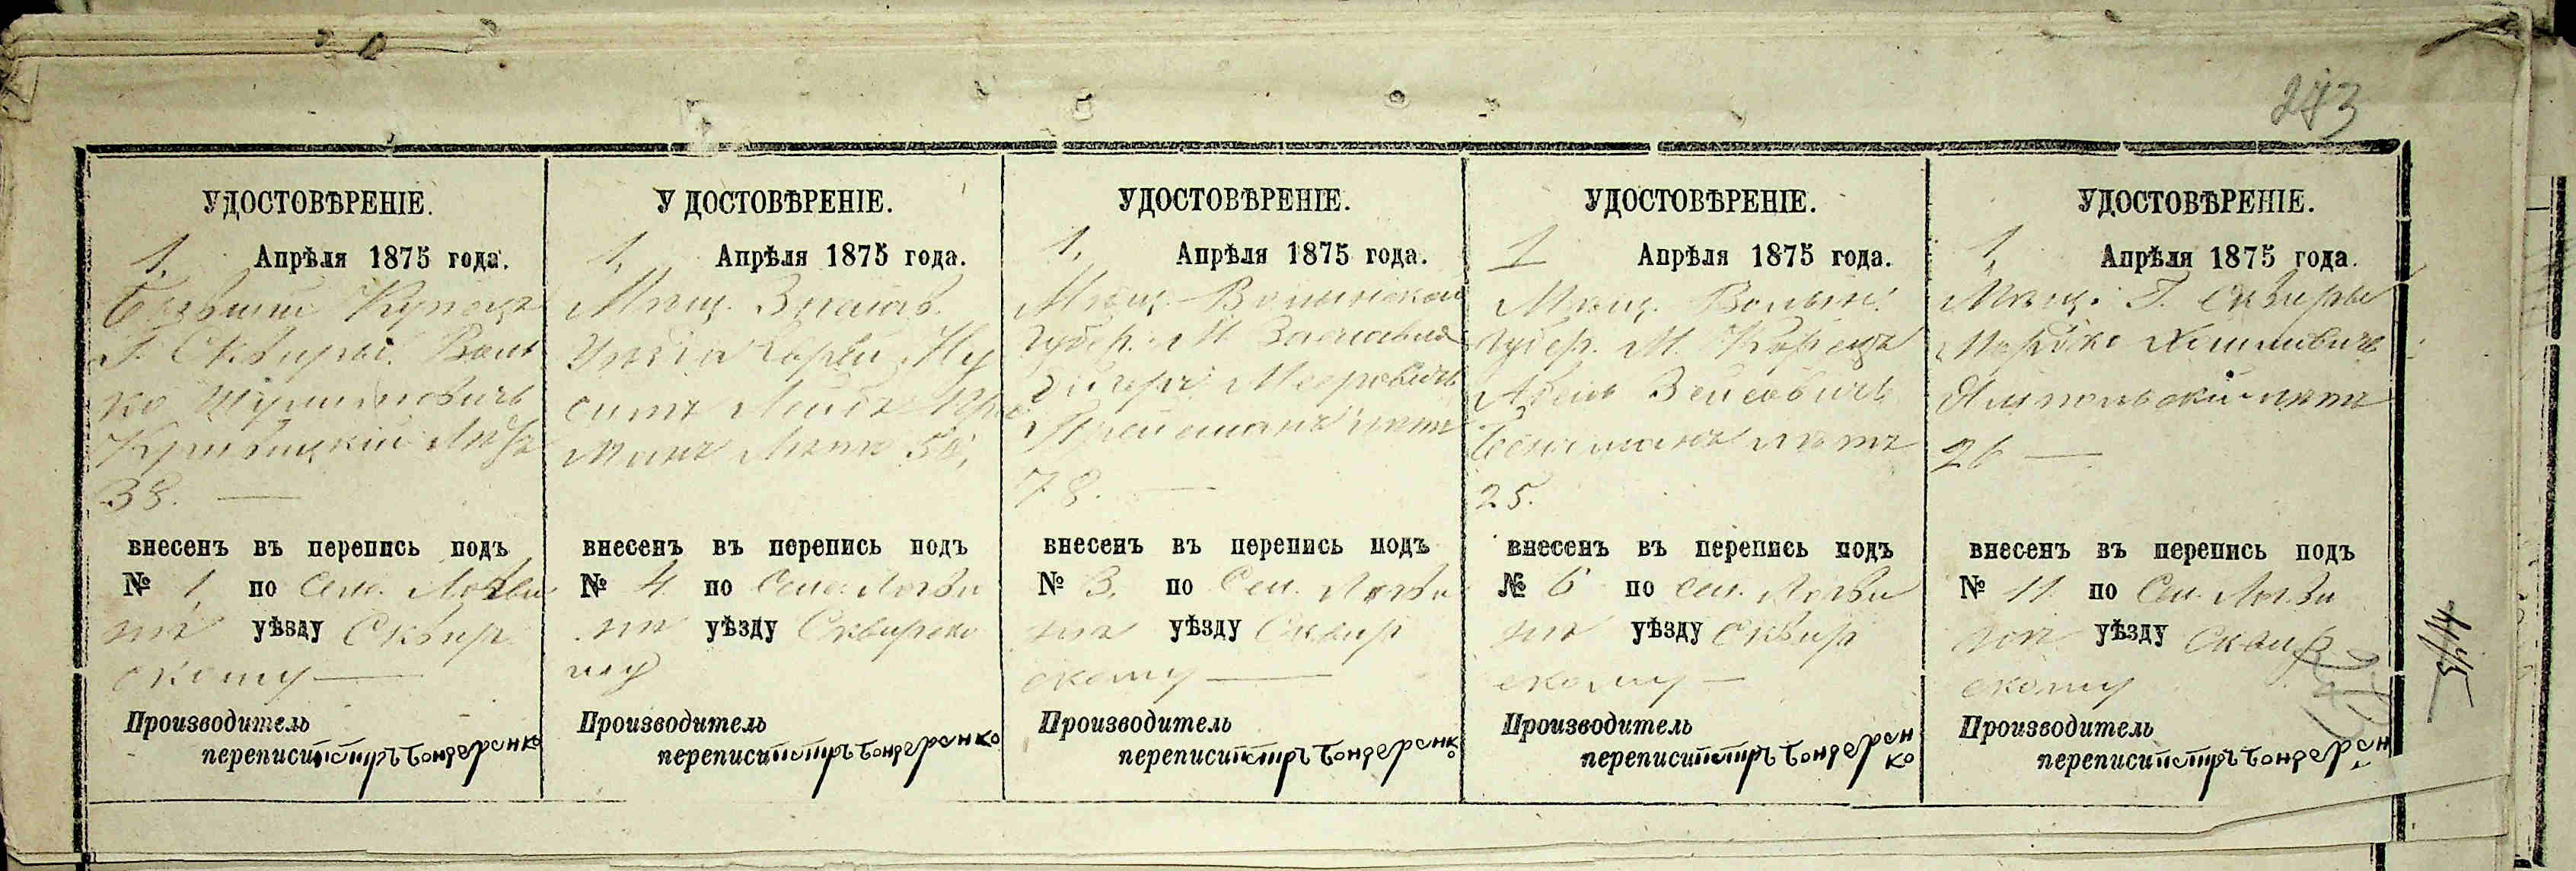 243
УДОСТОВѢРЕНІЕ.
1. Апрѣля 1875 года.
Бывшій Купецъ
Г. Сквиры. Воль
ко
38. —
внесенъ въ перепись подъ
№ 1. по Сел. Логви
на уѣзду Сквир
скому —
Производитель
переписи Петръ Бондаренко
У ДОСТОВѢРЕНІЕ.
1. Апрѣля 1875 года.
Мѣщ. Заслав.
Уѣзда
манъ Лѣтъ
внесенъ въ перепись подъ
№ 4. по Сел. Логви
на уѣзду Сквирско
му
Производитель
переписи Петръ Бондаренко
УДОСТОВѢРЕНІЕ.
1. Апрѣля 1875 года.
Мѣщ. Волынской
Губер. М. Заславля
Мееровичъ
лѣтъ
78. —
внесенъ въ перепись подъ
№ 3. по Сел. Логви
на уѣзду Сквир
скому —
Производитель
переписи Петръ Бондаренко
УДОСТОВѢРЕНІЕ.
1 Апрѣля 1875 года.
Мѣщ. Волын.
Губер. М. Корецъ
лѣтъ
25.
внесенъ въ перепись подъ
№ 6 по сел. Логви
на уѣзду Сквир
скому —
Производитель
переписи Петръ Бондарен
ко
УДОСТОВѢРЕНІЕ.
1. Апрѣля 1875 года.
Мѣщ. Г. Сквиры
Мордко Хаимовичъ
Ямпольскій лѣтъ
26 —
внесенъ въ перепись подъ
№ 11. по Сел. Логви
уѣзду Сквир
скому
Производитель
переписи Петръ Бондарен